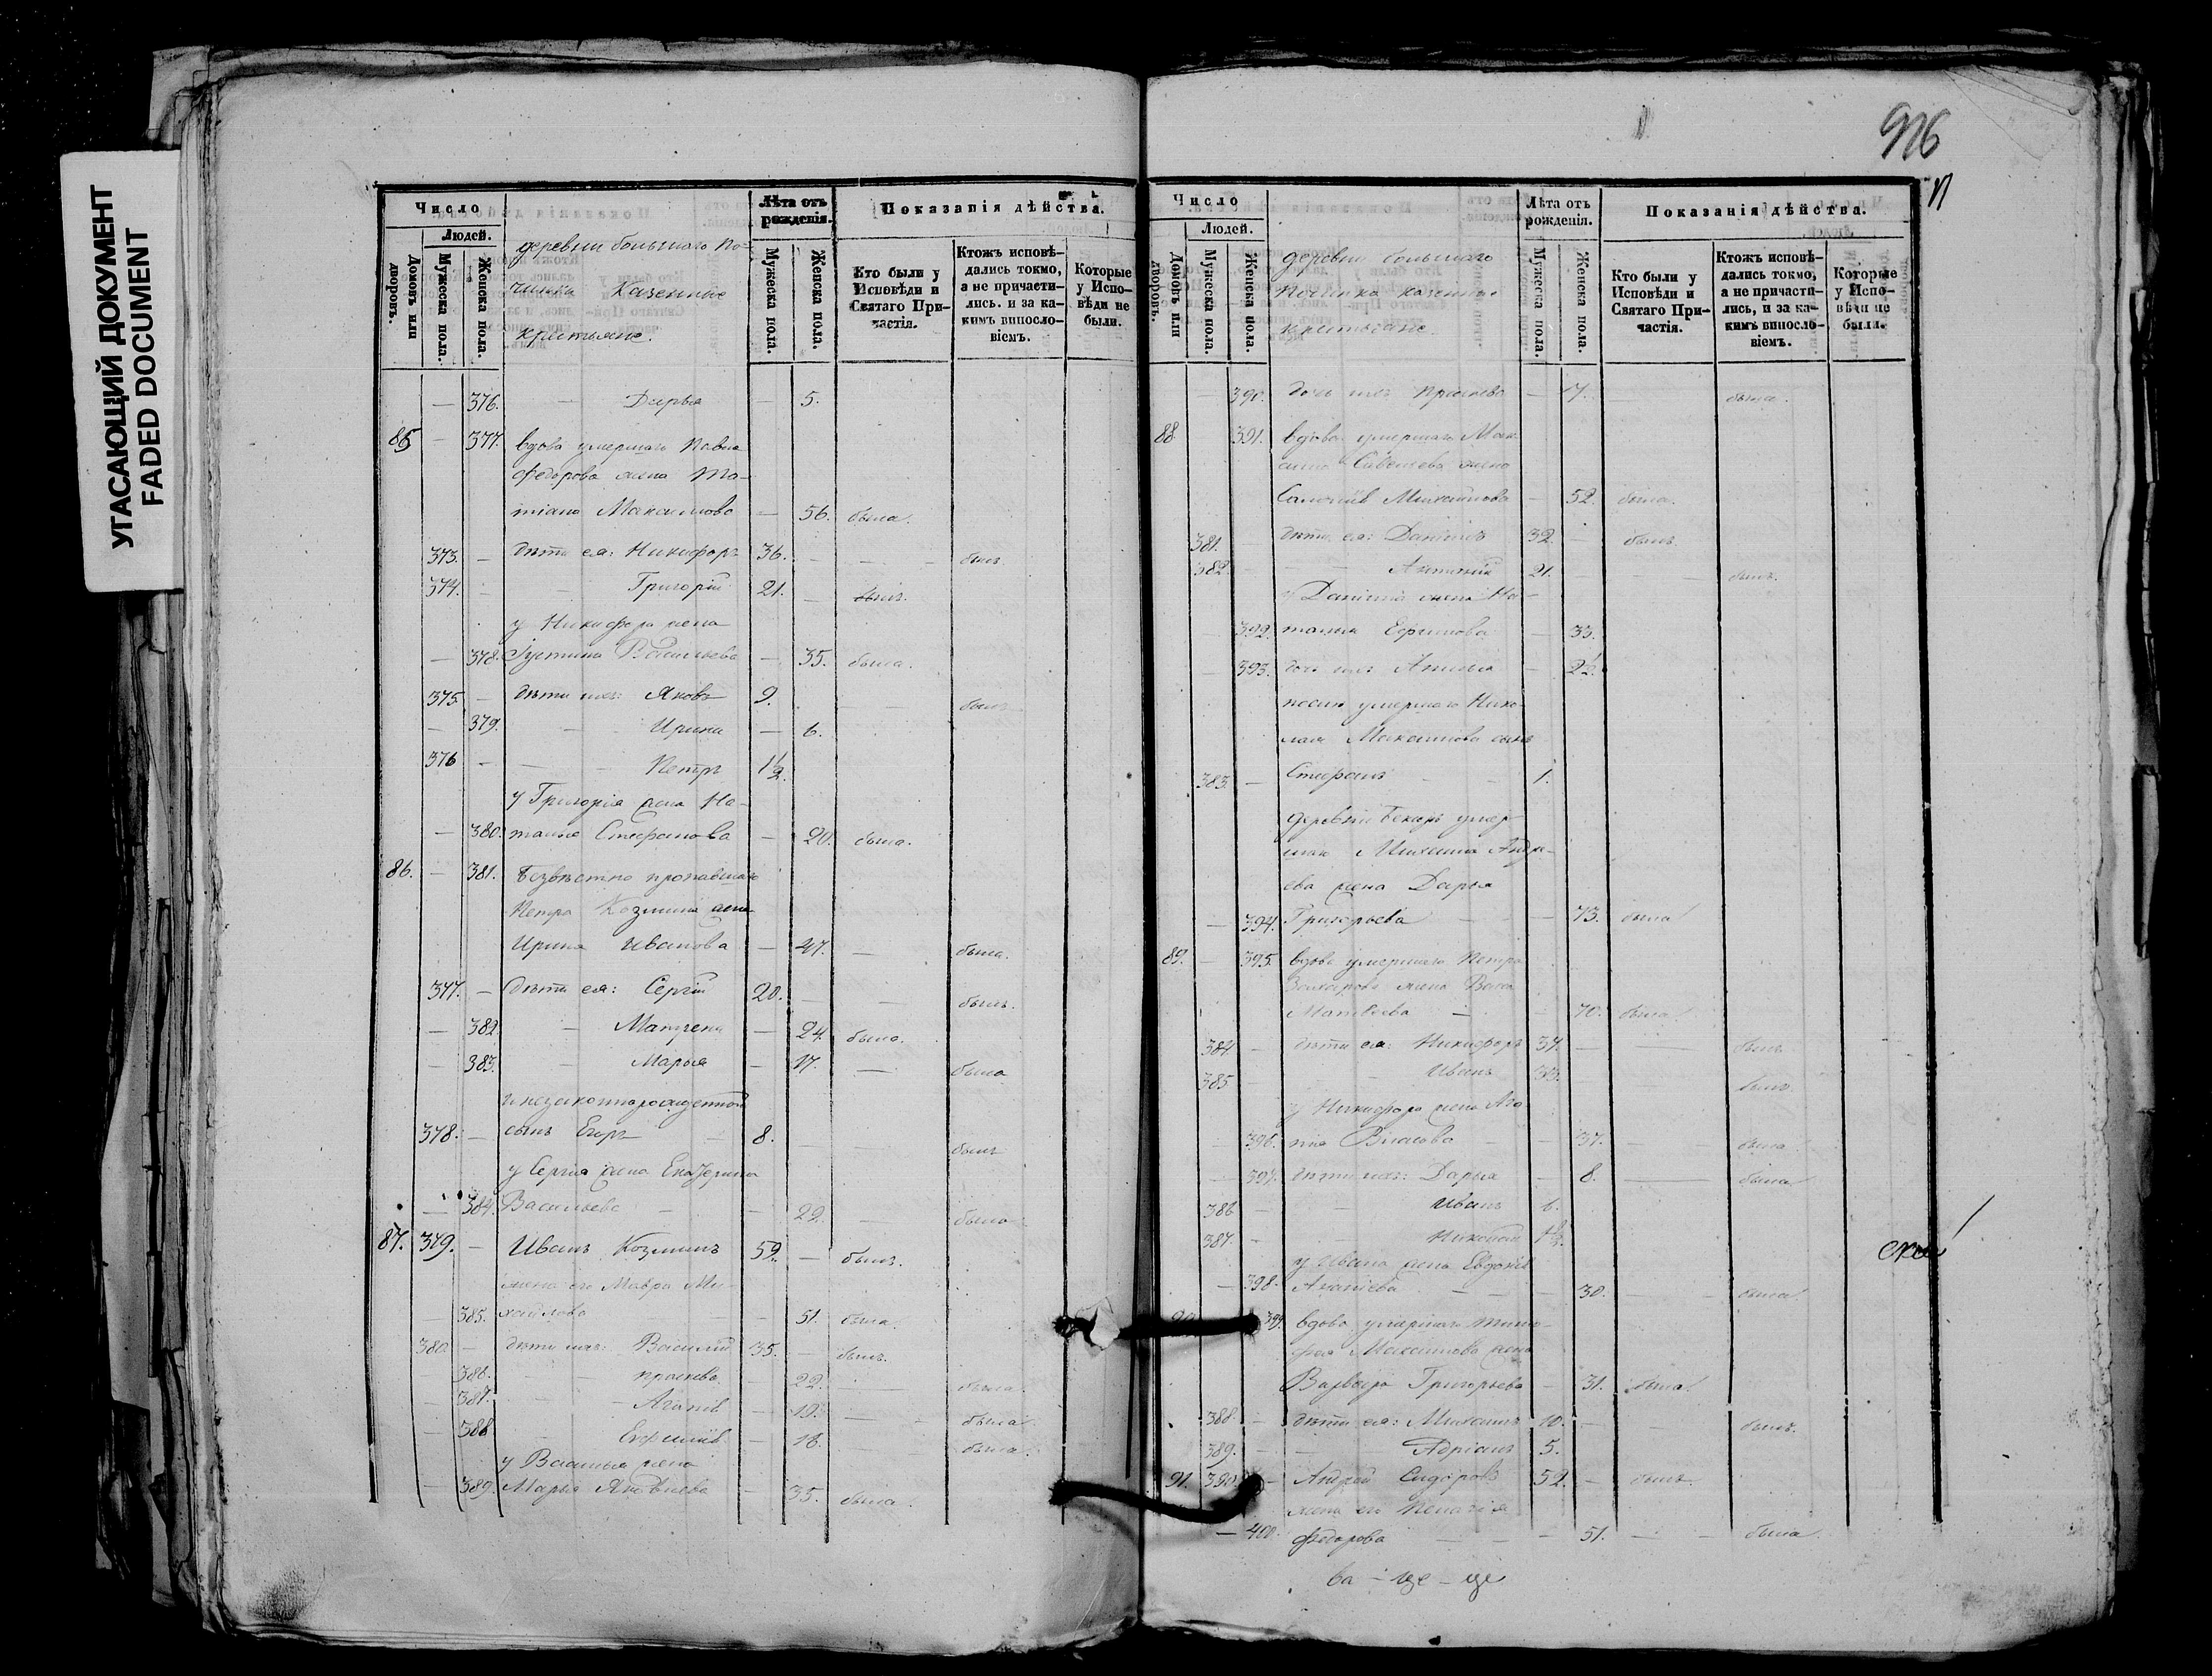 УГАСАЮЩИЙ ДОКУМЕНТ
FADED DOCUMENT
Число
Людей.
Домовъ или дворовъ.
Мужеска пола.
Женска пола.
деревни большаго По-
чинка Казенные
крестьяне.
Лѣта отъ рожденія.
Мужеска пола.
Женска пола.
Показанія дѣйства.
Кто были у Исповѣди и Святаго Причастія.
Ктожъ исповѣ-
дались токмо,
а не причасти-
лись. и за ка-
кимъ винослo-
віемъ.
Которые
у Испо-
вѣди не
были.
— 376. — Дарья — 5.
85 — 377. вдова умершаго Павла
Федорова жена Та-
тіана Максимова — 56. была.
373. — дѣти ея: Никифоръ 36. — — — былъ
374. — — Григорій 21. — былъ.
у Никифора жена
— 378. Іустина Васильева — 35. была.
375 — дѣти ихъ: Яковъ 9. — — былъ
— 379. — Ирина — 6.
376 — — Петръ 1½.
у Григорія жена На-
— 380. талья Стефанова — 20. была.
86. — 381. Безвѣстно пропавшаго
Петра Козмина жена
Ирина Иванова — 47. — была.
377. — дѣти ея: Сергій 20. — — былъ.
— 382 — Матрена — 24. была.
— 383. — Марья — 17. — была
и незаконнорожденной
378. — сынъ Егоръ — 8. былъ
у Сергія жена Екатерина
— 384. Васильева — — 22. — была
87. 379. — Иванъ Козминъ 59. — былъ.
жена его Мавра Ми-
— 385. хайлова — — 51. была.
380. — дѣти ихъ: Василій 35. — былъ.
386. — — Прасковья — 22. — была.
— 387. — Агапія — 19. — была
— 388 — — 16. была.
у Василья жена
— 389. Марья Яковлева — 35. была
926
Число
Людей.
Домовъ или дворовъ.
Мужеска пола.
Женска пола.
деревни большаго
Починка казенные
крестьяне.
Лѣта отъ рожденія.
Мужеска пола.
Женска пола.
Показанія дѣйства.
Кто были у Исповѣди и Святаго Причастія.
Ктожъ исповѣ-
дались токмо,
а не причасти-
лись, и за ка-
кимъ винослo-
віемъ.
Которые
у Испо-
вѣди не
были.
— 390. дочь ихъ — 7. — была.
88 391. вдова умершаго Мак-
сима Савельева жена
Михайлова — 52. была.
381. — дѣти ея: Даніилъ 32 — былъ.
382. — — 21. — — былъ.
у Даніила жена На-
392. талья Ефимова — 33.
393. дочь ихъ — 2½.
послѣ умершаго Нико-
лая Максимова сынъ
383. — Стефанъ — 1.
деревни умер-
шаго Михаила Андре-
ева жена Дарья
— 394. Григорьева — — 73. была
89. — 395. вдова умершаго Петра
Захарова жена
Матвѣева — 70. была
384. — дѣти ея: Никифоръ 37. — — былъ
385 — — Иванъ 33. былъ
у Никифора жена Ага-
— 396. пія Власова — — 37. — была
— 397. дѣти ихъ: Дарья — 8. — была
386 — — Иванъ 6.
387. — — Николай 1½.
у Ивана жена Евдокія
— 398. Ананіева — — — 30. — была
90. 399. вдова умершаго Тимо-
фея Максимова жена
Варвара Григорьева — 31. была
388. — дѣти ея: Михаилъ 10. — — былъ.
389. — — Адріанъ 5.
91. 380. — Андрей Сидоровъ 52. — былъ
жена его Пелагія
— 400. Федорова — — — 51. — — была